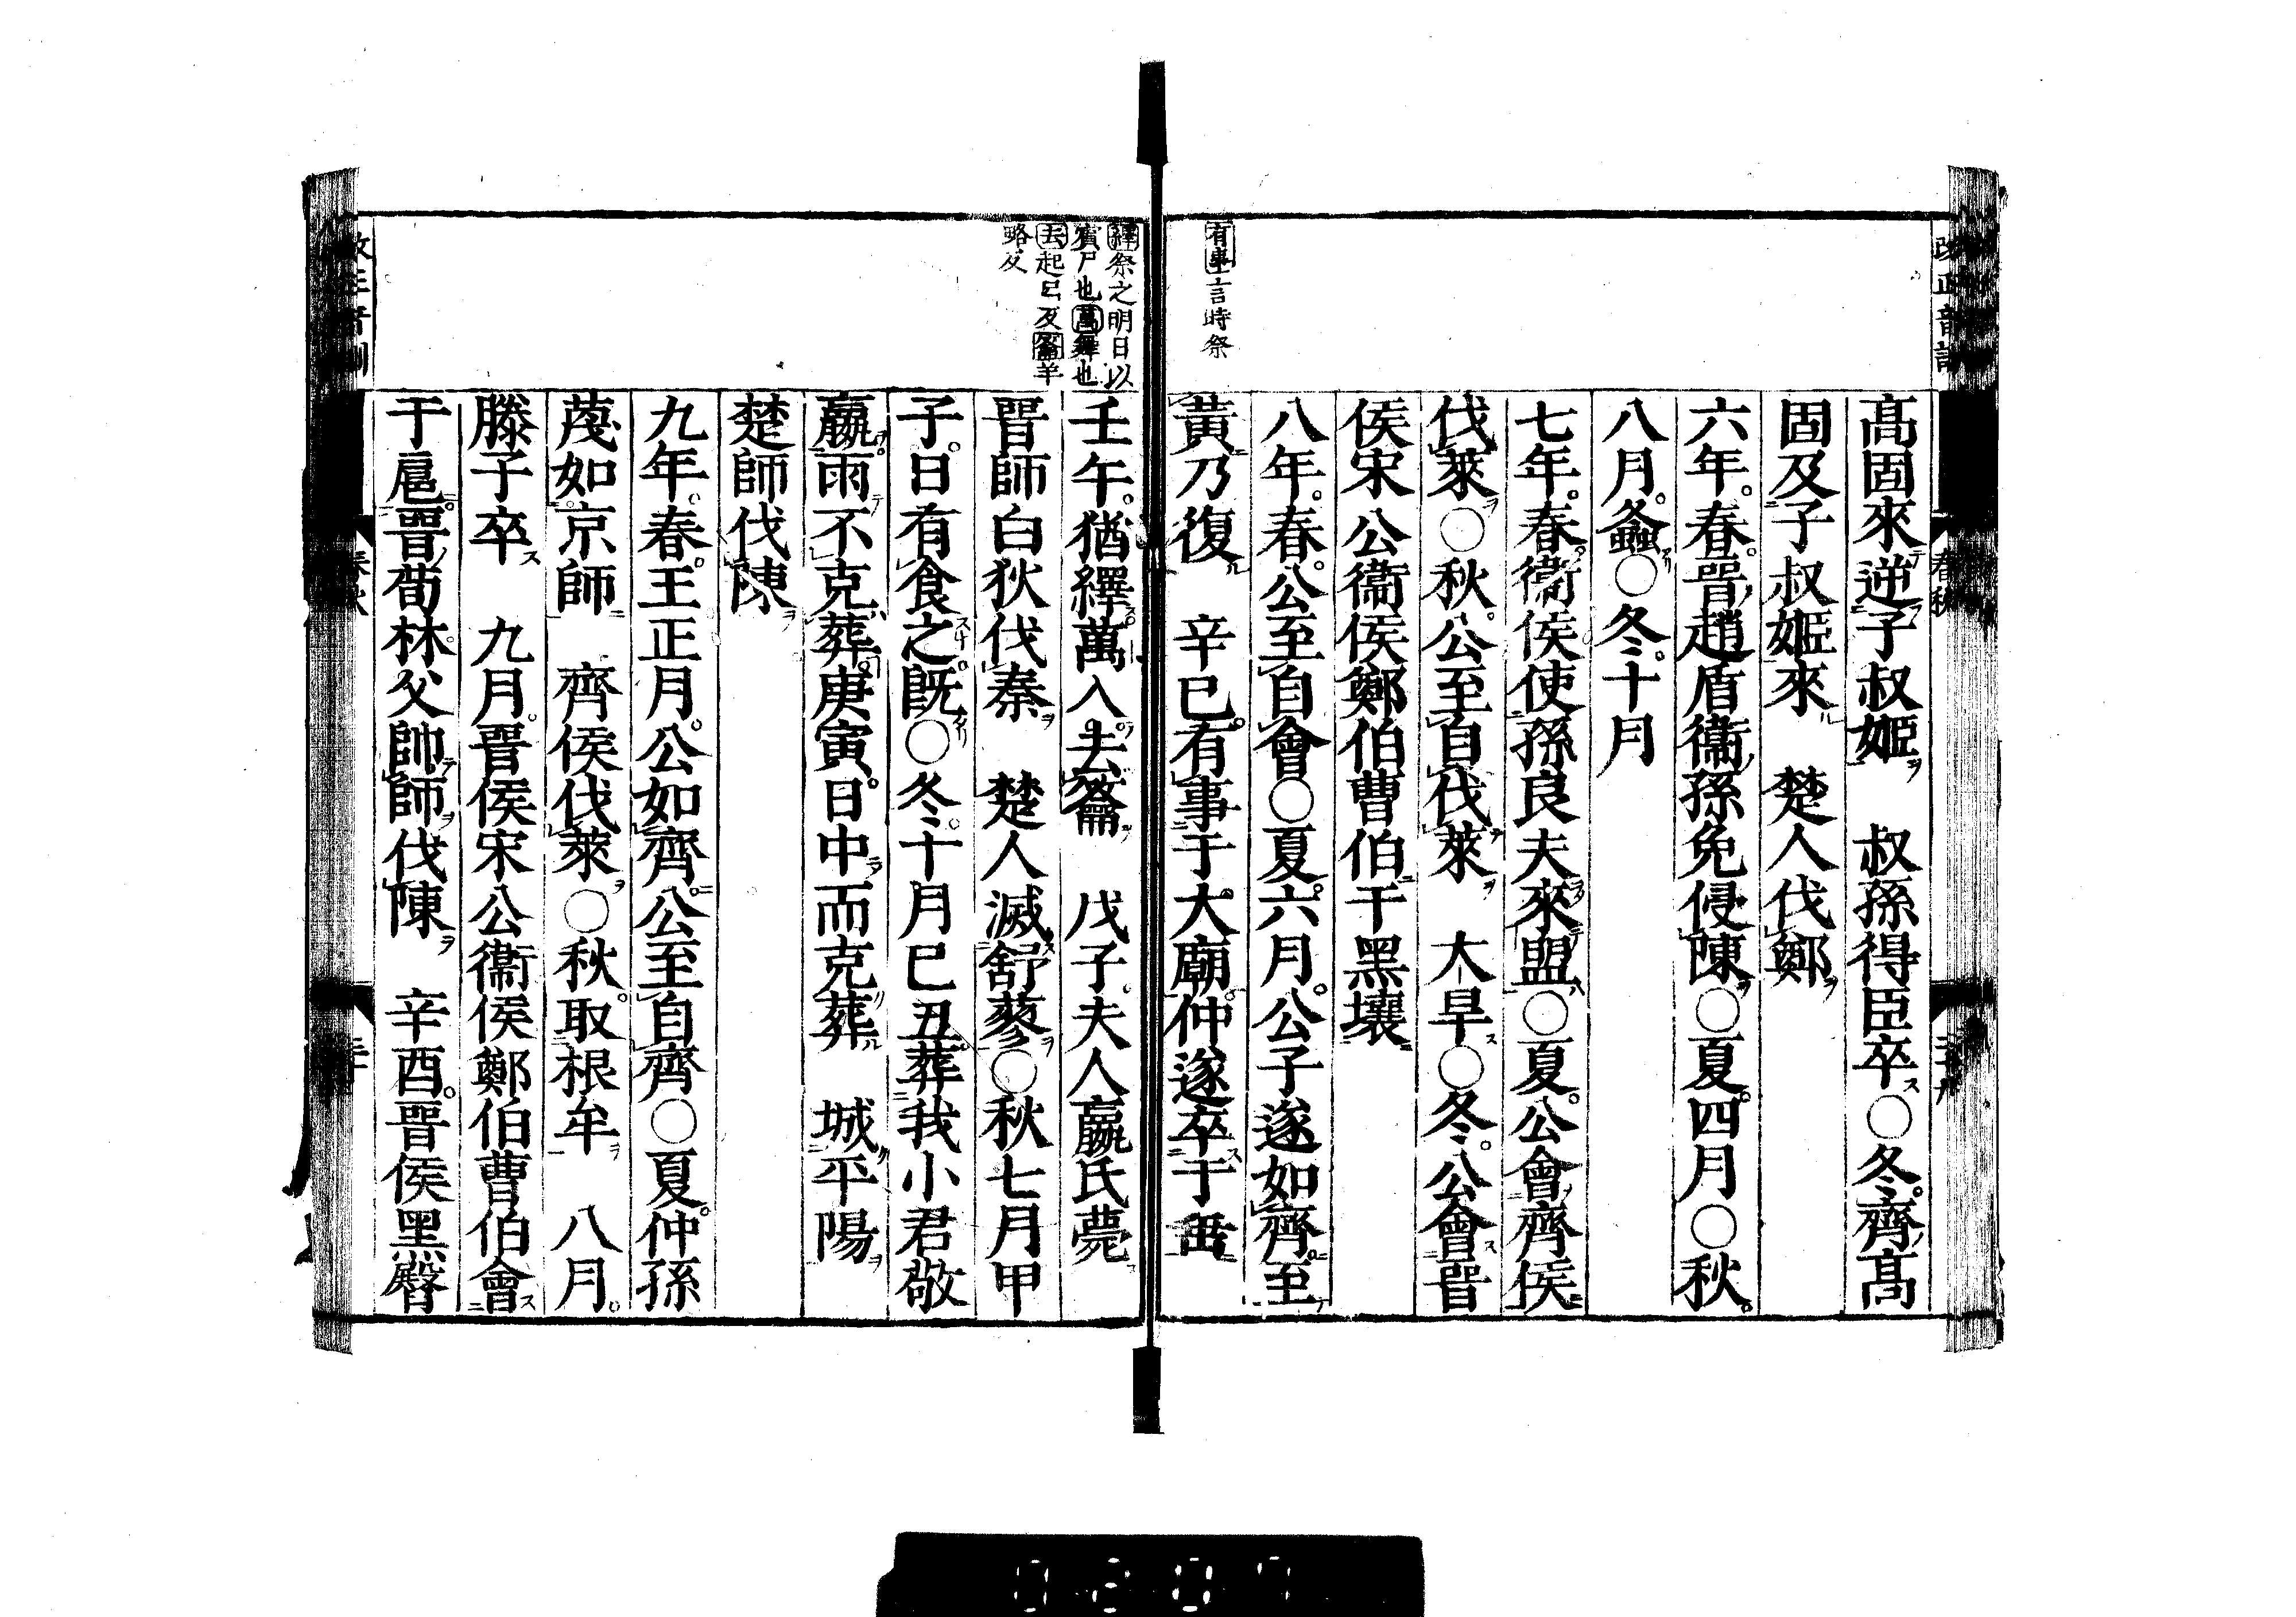 改正音訓
春秋
有事言時祭
高固來逆子叔姬　叔孫得臣卒○冬齊高
固及子叔姬來　楚人伐鄭
六年春晉趙盾衞孫免侵陳○夏四月○秋
八月螽○冬十月
七年春衞侯使孫良夫來盟○夏公會齊侯
伐萊○秋公至自伐萊　大旱○冬公會晉
侯宋公衞侯鄭伯曹伯于黑壤
八年春公至自會○夏六月公子遂如齊至
黃乃復　辛巳有事于大廟仲遂卒于垂
繹祭之明日以
賓尸也萬舞也
去起呂反籥羊
略反
壬午猶繹萬入去籥　戊子夫人嬴氏薨
晉師白狄伐秦　楚人滅舒蓼○秋七月甲
子日有食之既○冬十月己丑葬我小君敬
嬴雨不克葬庚寅日中而克葬　城平陽
楚師伐陳
九年春王正月公如齊公至自齊○夏仲孫
蔑如京師　齊侯伐萊○秋取根牟　八月
滕子卒　九月晉侯宋公衞侯鄭伯曹伯會
于扈晉荀林父帥師伐陳　辛酉晉侯黑臀
改正音訓
春秋
三十